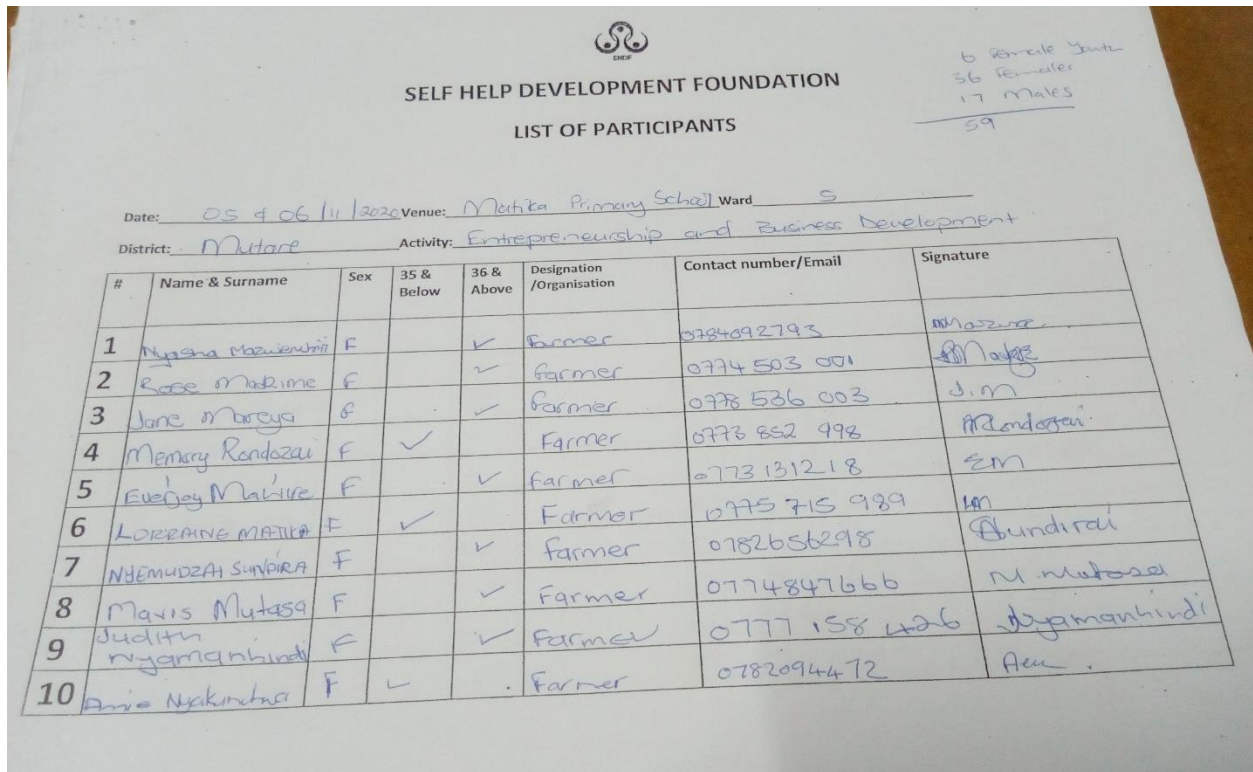 SHDF
6 Female Youth
36 Females
17 Males
59
SELF HELP DEVELOPMENT FOUNDATION
LIST OF PARTICIPANTS
Date: 05 & 06/11/2020 Venue: Matika Primary School Ward 5
District: Mutare Activity: Entrepreneurship and Business Development
# Name & Surname Sex 35 & Below 36 & Above Designation /Organisation Contact number/Email Signature
1 Nyasha F ✓ Farmer 0784092793
2 Rose Madzime F ✓ Farmer 0774 503 001
3 Jane Moreya F ✓ Farmer 0778 536 003 J.M
4 Memory Rondozai F ✓ Farmer 0773 852 998 MRondozai
5 Everjoy Mawire F ✓ Farmer 0773131218 EM
6 LORRAINE MATIKA F ✓ Farmer 0775 715 989 LM
7 NYEMUDZAI SUNDIRA F ✓ farmer 0782656298
8 Mavis Mutasa F ✓ Farmer 0774847666 M. Mutasa
9 Judith Nyamanhindi F ✓ Farmer 0777 158 426 Nyamanhindi
10 F ✓ Farmer 0782094472